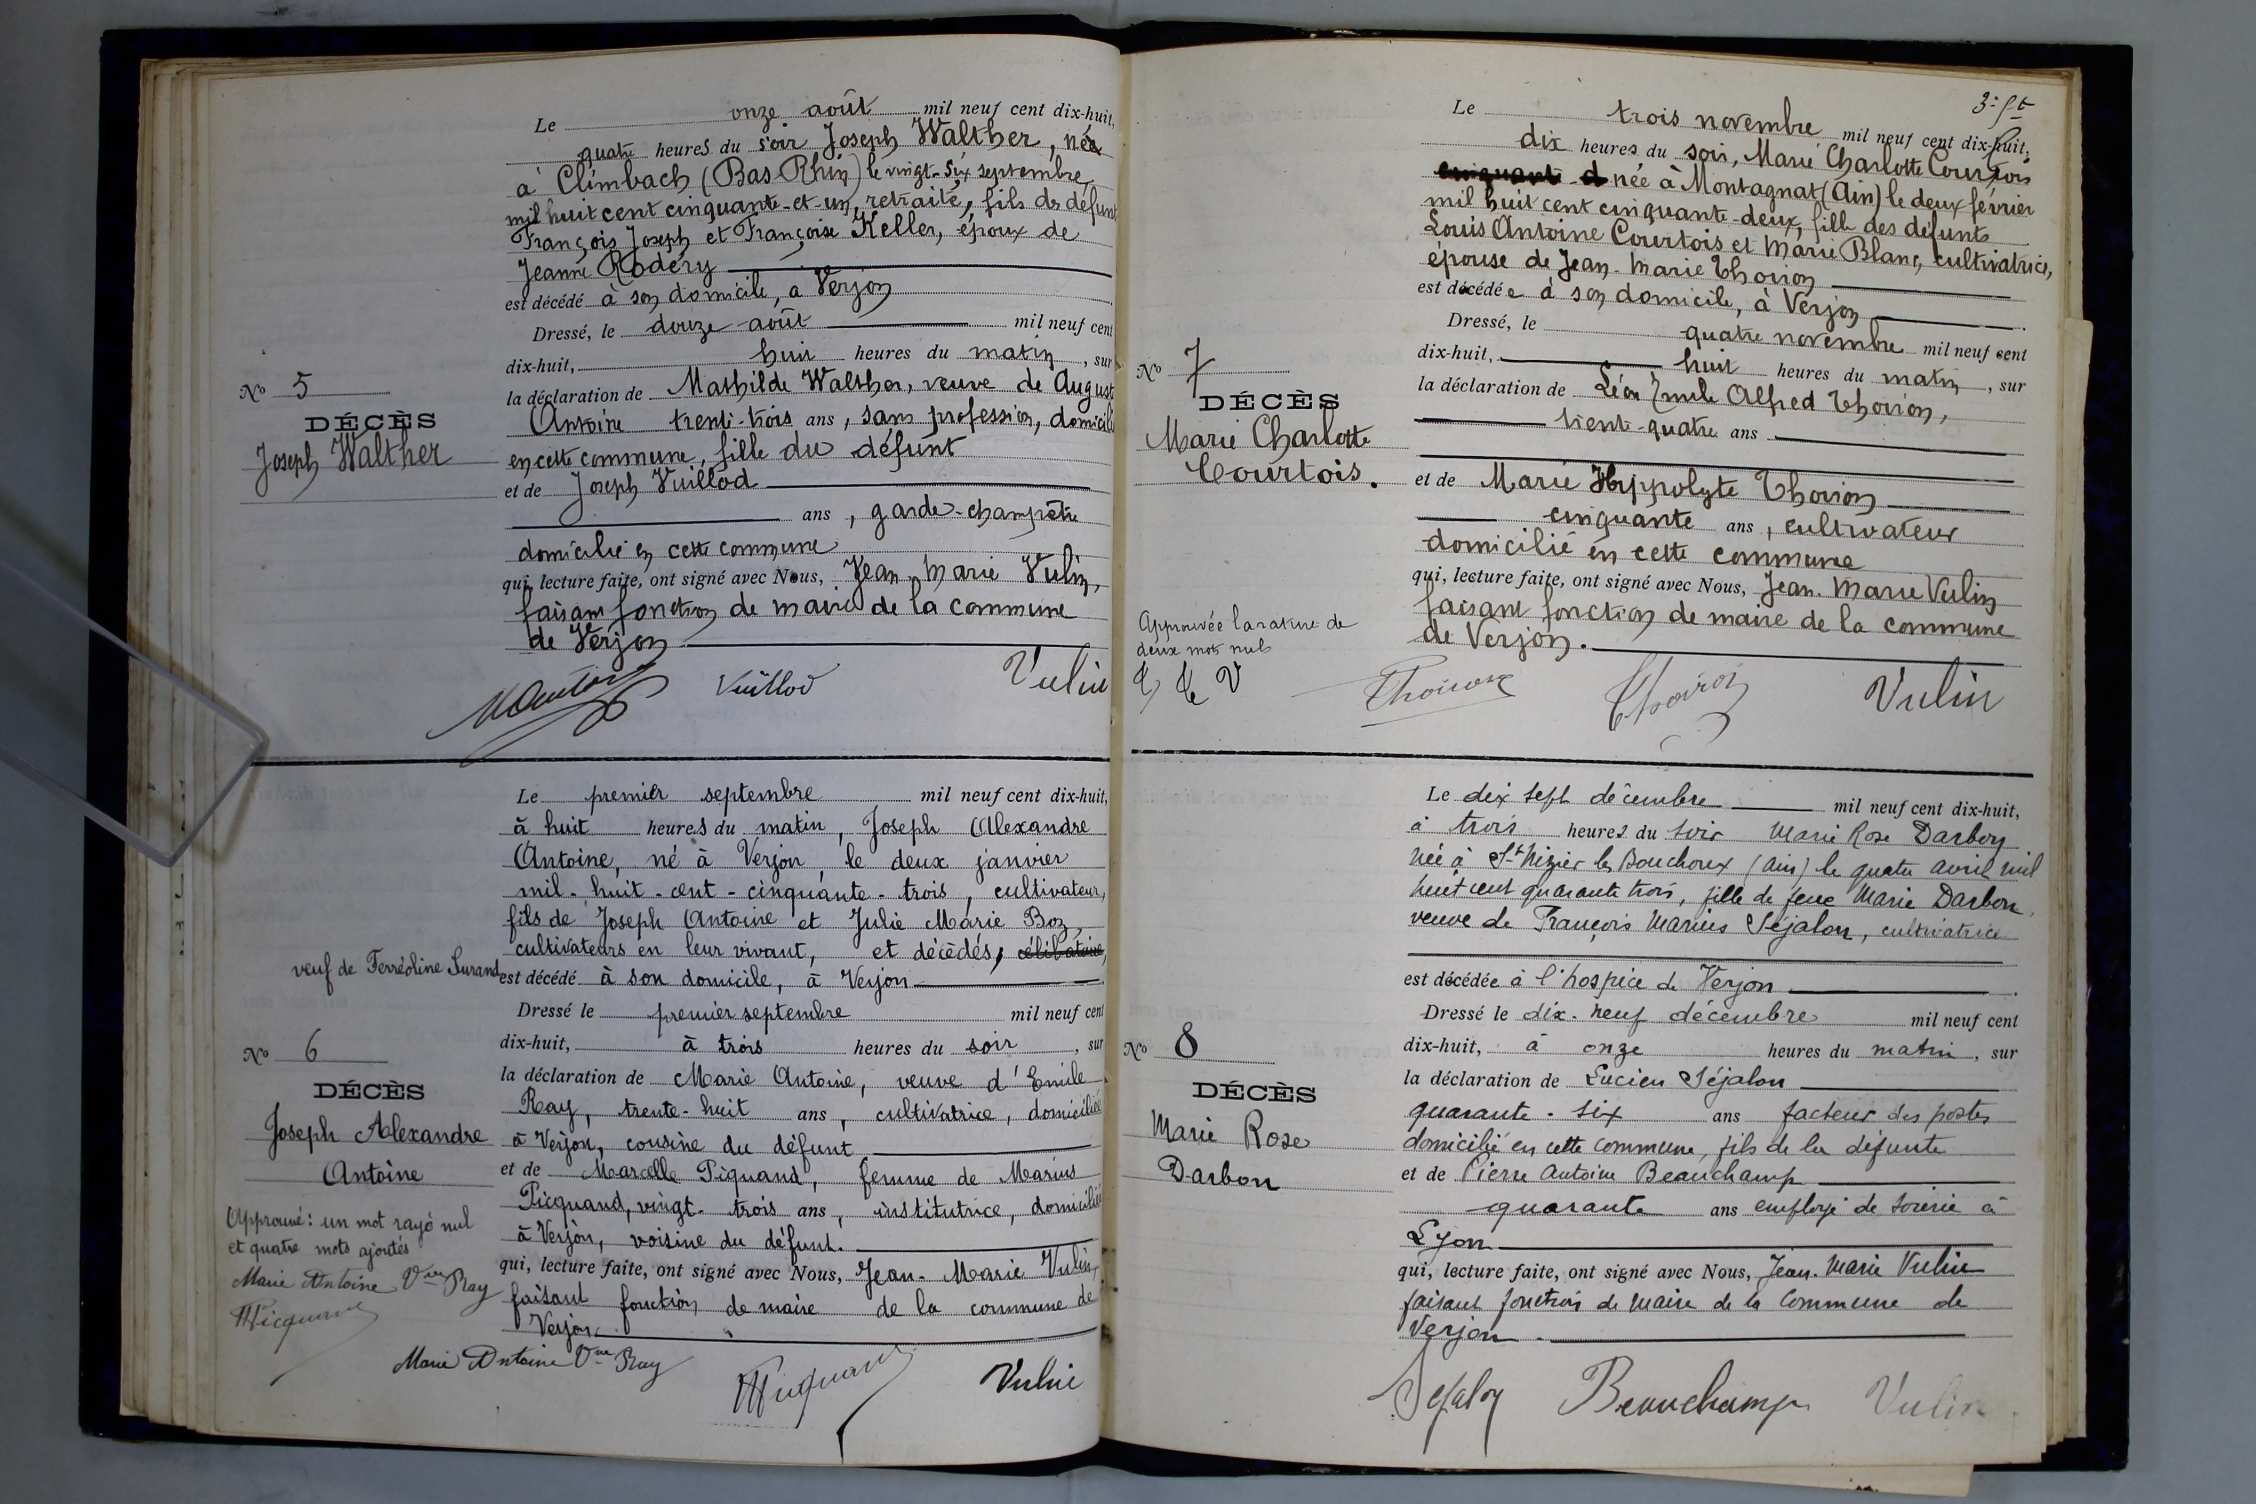 Le onze août mil neuf cent dix-huit,
quatre heures du soir Joseph Walther, né
à Climbach (Bas-Rhin) le vingt-six septembre
mil huit cent cinquante-et-un, retraité, fils de défunt
François Joseph et Françoise Keller, époux de
Jeanne Rodéry
est décédé à son domicile, à Verjon
Dressé, le douze août mil neuf cent
dix-huit, huit heures du matin, sur
la déclaration de Mathilde Walther, veuve de August
Antoine trente-trois ans, sans profession, domicilié
en cette commune, fille du défunt
et de Joseph Vuillod
ans, garde-champêtre
domicilié en cette commune
qui, lecture faite, ont signé avec Nous, Jean Marie Vulin,
faisant fonction de maire de la commune
de Verjon
No 5
DÉCÈS
Joseph Walther
Vuillod Vulin
Le premier septembre mil neuf cent dix-huit,
à huit heures du matin, Joseph Alexandre
Antoine, né à Verjon, le deux janvier
mil-huit-cent-cinquante-trois, cultivateur,
fils de Joseph Antoine et Julie Marie Boz,
cultivateurs en leur vivant, et décédés, célibataire,
veuf de Ferréoline Surand
est décédé à son domicile, à Verjon
Dressé le premier septembre mil neuf cent
dix-huit, à trois heures du soir, sur
la déclaration de Marie Antoine, veuve d'Emile
Ray, trente-huit ans, cultivatrice, domiciliée
à Verjon, cousine du défunt
et de Marcelle Piquand, femme de Marius
Picquand, vingt-trois ans, institutrice, domiciliée
à Verjon, voisine du défunt.
qui, lecture faite, ont signé avec Nous, Jean-Marie Vulin,
faisant fonction de maire de la commune de
Verjon.
No 6
DÉCÈS
Joseph Alexandre
Antoine
Approuvé: un mot rayé nul
et quatre mots ajoutés
Marie Antoine Vve Ray
MPicquand
Marie Antoine Vve Ray MPicquand Vulin
Le trois novembre mil neuf cent dix-huit,
dix heures du soir, Marie Charlotte Courtois
née à Montagnat (Ain) le deux février
mil huit cent cinquante-deux, fille des défunts
Louis Antoine Courtois et Marie Blanc, cultivatrice,
épouse de Jean-Marie Thoiron
est décédée à son domicile, à Verjon
Dressé, le quatre novembre mil neuf cent
dix-huit, huit heures du matin, sur
la déclaration de Léon Emile Alfred Thoiron,
trente-quatre ans
et de Marie Hippolyte Thoiron
cinquante ans, cultivateur
domicilié en cette commune
qui, lecture faite, ont signé avec Nous, Jean-Marie Vulin
faisant fonction de maire de la commune
de Verjon.
No 7
DÉCÈS
Marie Charlotte
Courtois.
Approuvée la rature de
deux mots nuls
Thoiron Thoiron Vulin
Le dix sept décembre mil neuf cent dix-huit,
à trois heures du soir Marie Rose Darbon
née à St Nizier le Bouchoux (Ain) le quatre avril mil
huit cent quarante trois, fille de feue Marie Darbon,
veuve de François Marius Séjalon, cultivatrice
est décédée à l'hospice de Verjon
Dressé le dix-neuf décembre mil neuf cent
dix-huit, à onze heures du matin, sur
la déclaration de Lucien Séjalon
quarante-six ans facteur des postes
domicilié en cette commune, fils de la défunte
et de Pierre Antoine Beauchamp
quarante ans employé de soierie à
Lyon
qui, lecture faite, ont signé avec Nous, Jean-Marie Vulin
faisant fonction de maire de la Commune de
Verjon.
No 8
DÉCÈS
Marie Rose
Darbon
Sejalon Beauchamp Vulin